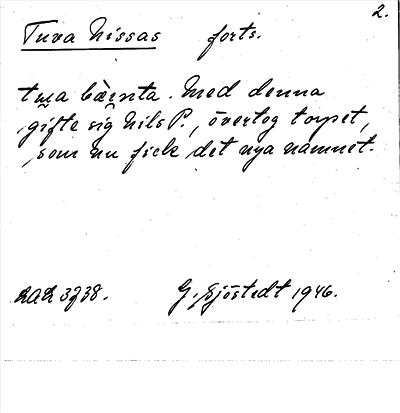 2.
Tuva Nissas forts.
tuva bärnta. Med denna
gifte sig Nils P., övertog torpet,
som nu fick det nya namnet.
3738. G. Sjöstedt 1946.